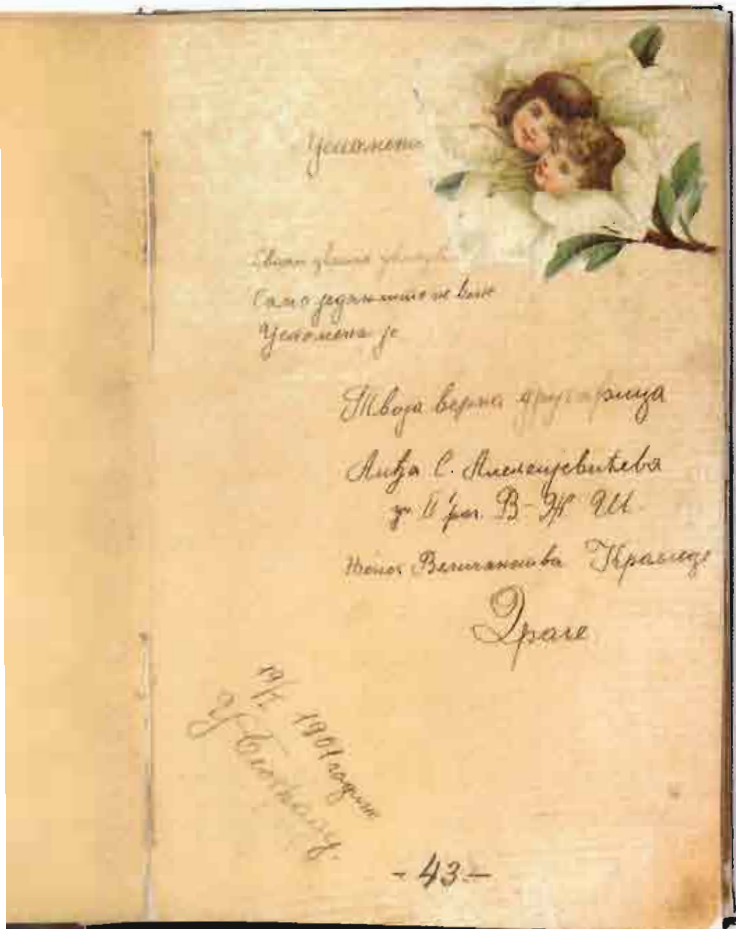 Успомена
Сваки цвет
Само један што не вене
Успомена је
Твоја верна другарица
Анђа С. Алексијевићева
уч. II раз. В-Ж Ш.
Њеног Величанства Краљице
Драге
19/I 1901 године
У Београду.
-43-